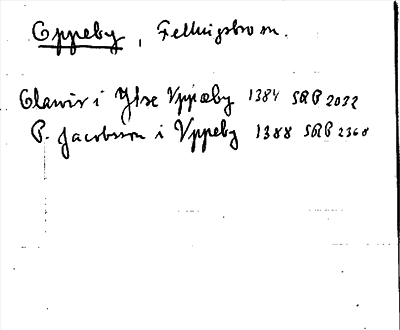 Oppeby, Fellingsbro sn.
Olawir i Ytre Vppæby 1384 SRP 2032
P. Jacobsson i Vppeby 1388 SRP 2368